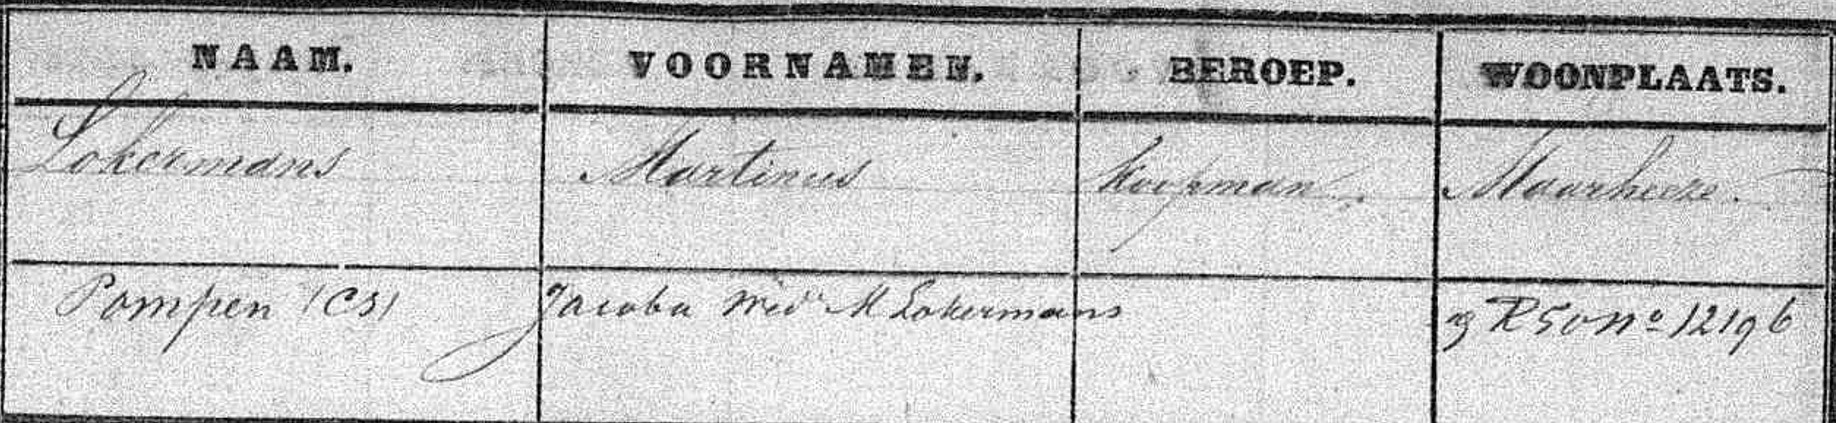 NAAM. VOORNAMEN. BEROEP. WOONPLAATS.
Lokermans Martinus Koopman Maarheeze.
Pompen (CS) Jacoba Wed M Lokermans R 50 No 12196